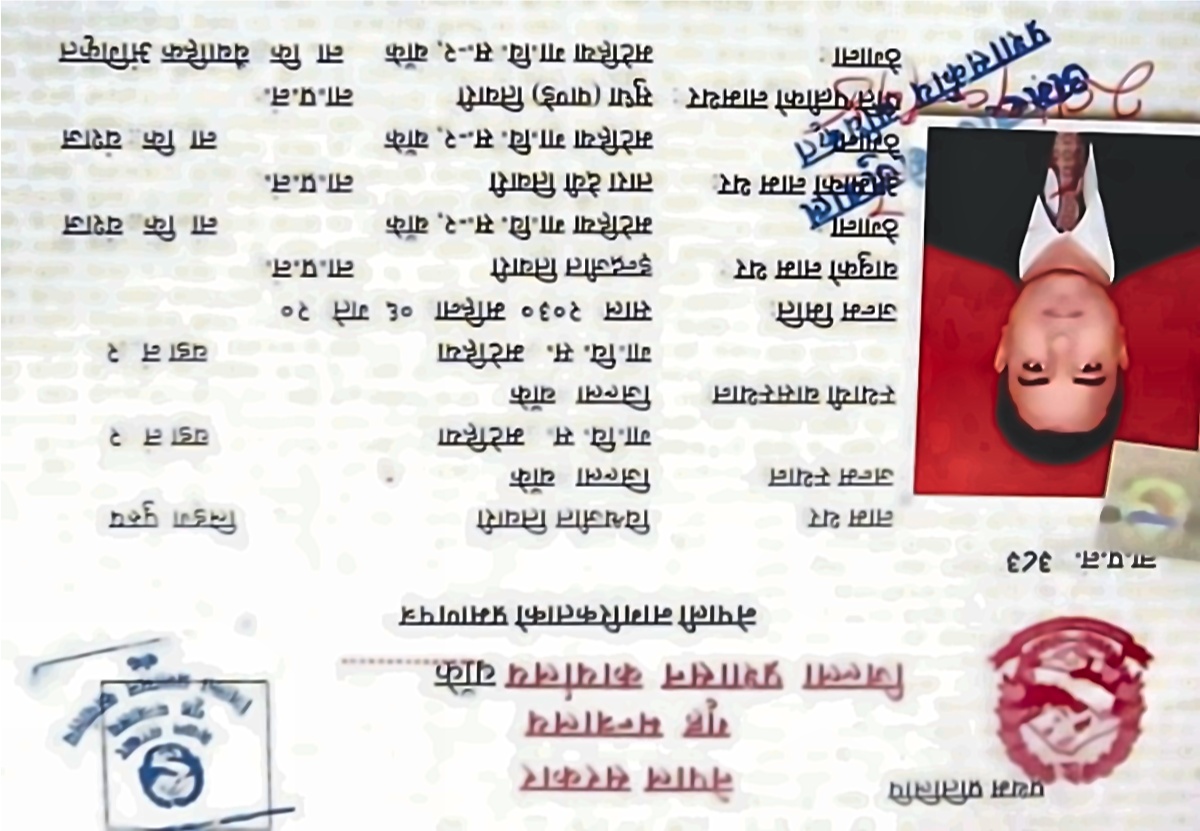 प्रथम प्रतिलिपि
नेपाल सरकार
गृह मन्त्रालय
जिल्ला प्रशासन कार्यालय बाँके
नेपाली नागरिकताको प्रमाणपत्र
ना.प्र.नं. ३८३
नाम थर विश्वजीत तिवारी लिङ्ग पुरुष
जन्म स्थान जिल्ला बाँके
गा.वि.स. भटेहिया वडा नं २
स्थायी वासस्थान जिल्ला बाँके
गा.वि.स. भटेहिया वडा नं २
जन्म मिति: साल २०३० महिना ०६ गते २०
बाबुको नाम थर इन्द्रजीत तिवारी ना.प्र.नं.
ठेगाना भटेहिया गा.वि.स.-२, बाँके ना कि वंशज
आमाको नाम थर: तारा देवी तिवारी ना.प्र.नं.
ठेगाना भटेहिया गा.वि.स.-२, बाँके ना कि वंशज
पति/पत्नीको नामथर: सुधा (पाण्डे) तिवारी ना.प्र.नं.
ठेगाना: भटेहिया गा.वि.स.-२, बाँके ना कि वैवाहिक अंगिकृत
प्रशासकीय अधिकृत